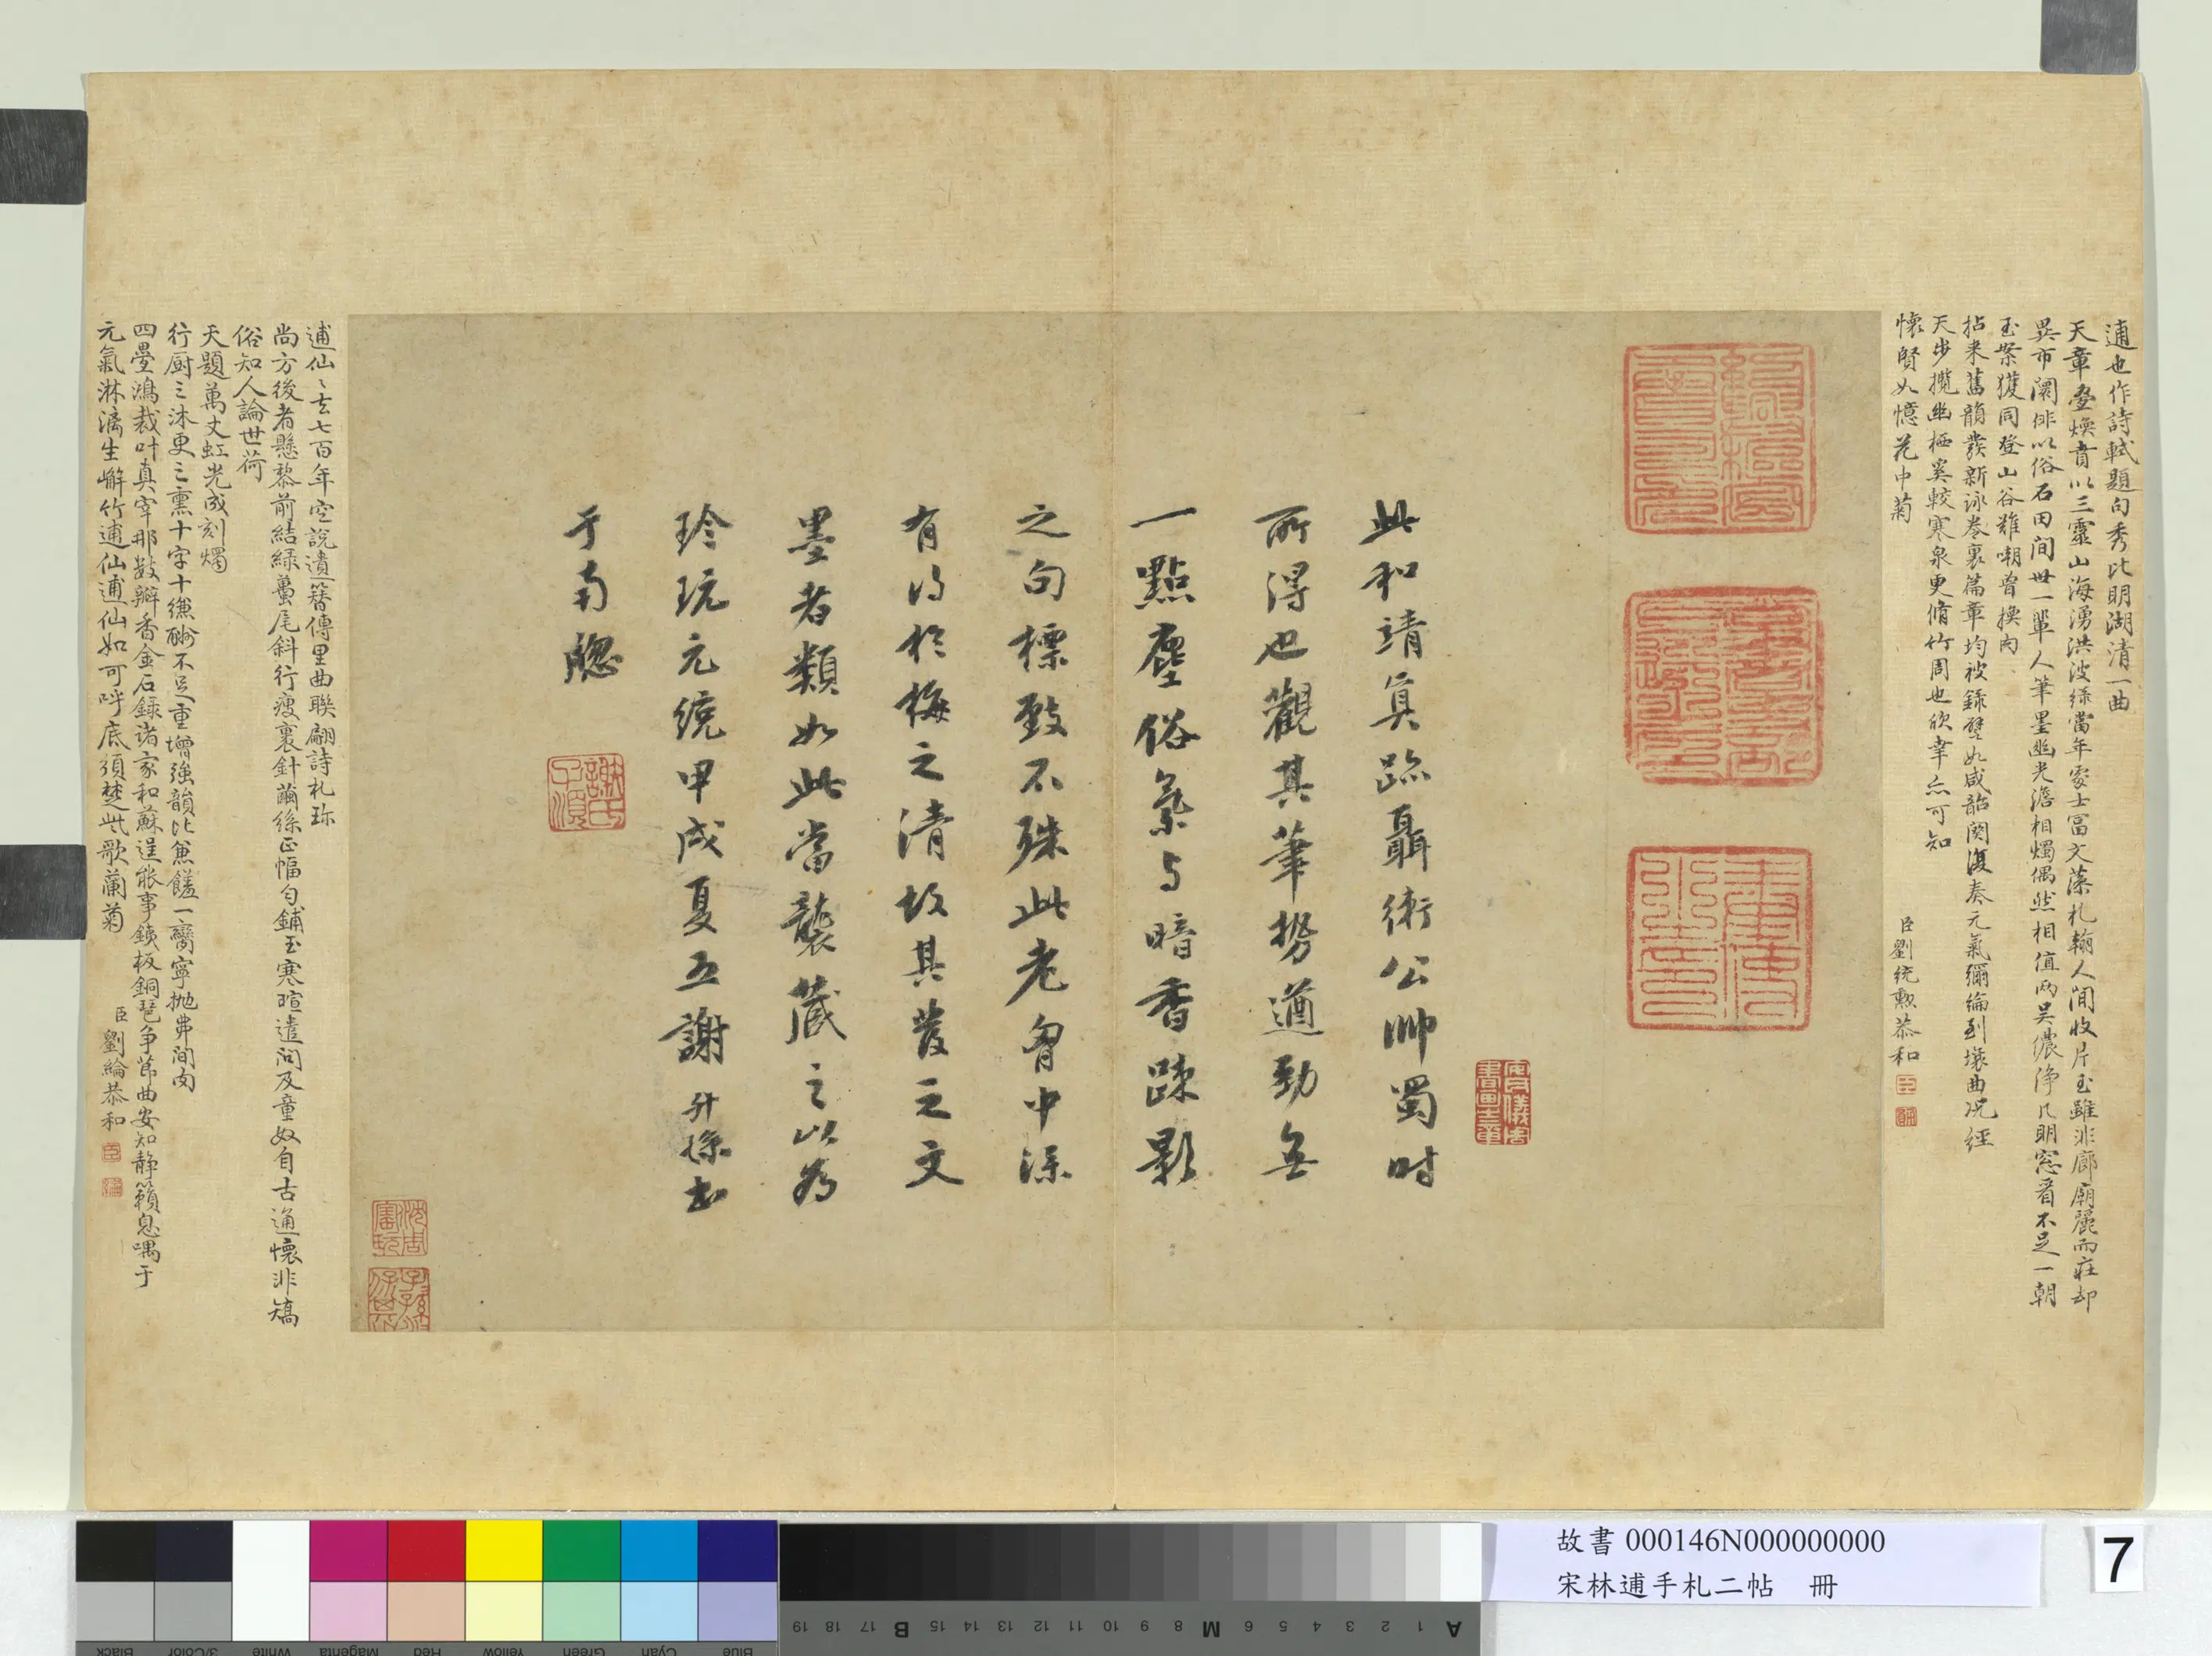 逋也作詩軾題句秀比明湖清一曲
天章疊煥賁以三靈山海湧洪波綠當年處士富文藻札翰人間收片玉雖非廊廟麗而莊却
異市闤俳以俗石田間世一輩人筆墨幽光澹相燭偶然相值两吴儂淨几明窓看不足一朝
玉案獲同登山谷難嘲曽換肉
拈来舊韻發新泳卷裏篇章均被錄譬如咸韶闋復奏元氣彌綸到壤曲况經
天步攬幽栖奚較寒泉更脩竹周也欣幸亦可知
懷賢如憶花中菊
臣劉統勲恭和
此和靖真跡聶衛公帥蜀时
所得也觀其筆勢遒勁無
一點塵俗氣与暗香踈影
之句標致不殊此老胷中深
有得於梅之清故其發之文
墨者類如此當襲藏之以為
珍玩元統甲戌夏五謝升孫书
于南牕
謝氏子順
逋仙之去七百年空說遺簪傳里曲聯翩詩札珎
尚方後者懸黎前結綠蠆尾斜行瘦裏針繭絲正幅勻鋪玉寒暄遣问及童奴自古通懷非矯
俗知人論世荷
天題萬丈虹光成刻燭
行厨三沐更三熏十字十縑酬不足重增強韻比兼饈一臠寧抛弗间肉
四疊鴻裁叶真宰那数瓣香金石録诸家和蘇逞能事鐵板銅琶争節曲安知静籟息喁于
元氣淋漓生嶰竹逋仙逋仙如可呼底須楚些歌蘭菊
臣劉綸恭和
故書 000146N000000000
宋林逋手札二帖 冊
7
A 1 2 3 4 5 6 M 8 9 10 11 12 13 14 15 B 17 18 19
Black 3/Color White Magenta Red Yellow Green Cyan Blue